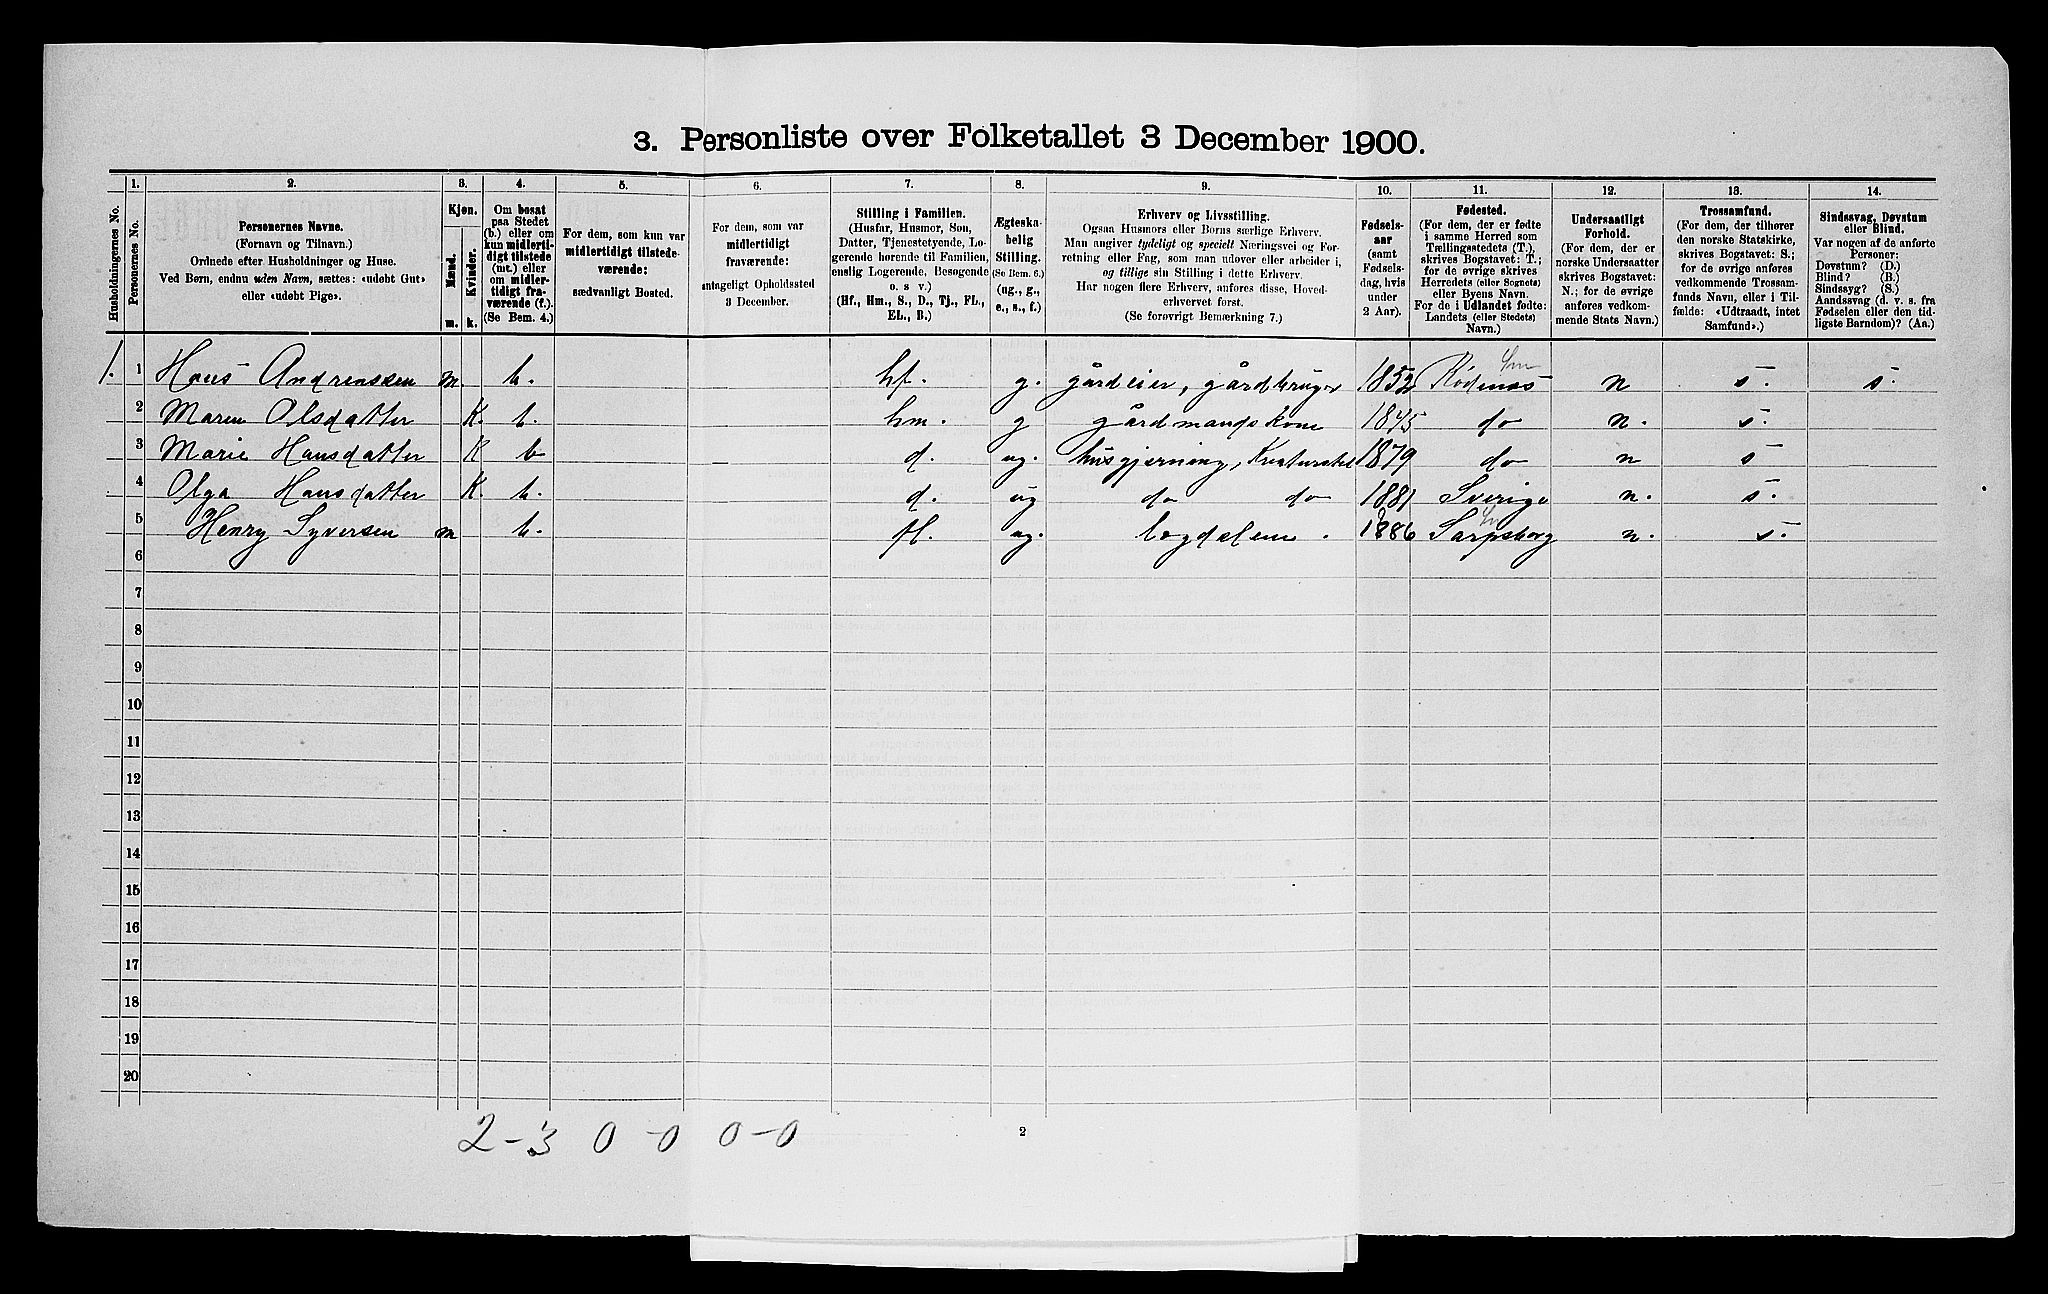 3. Personliste over Folketallet 3 December 1900.
Husholdningernes No.
1.
Personernes No.
2.
Personernes Navne.
(Fornavn og Tilnavn.)
Ordnede efter Husholdninger og Huse.
Ved Børn, endnu uden Navn, sættes: «udøbt Gut»
eller «udøbt Pige».
3.
Kjøn.
Mænd.
Kvinder.
m.
k.
4.
Om bosat
paa Stedet
(b.) eller om
kun midlerti-
digt tilstede
(mt.) eller
om midler-
tidigt fra-
værende (f.).
(Se Bem. 4.)
5.
For dem, som kun var
midlertidigt tilstede-
værende:
sædvanligt Bosted.
6.
For dem, som var
midlertidigt
fraværende:
antageligt Opholdssted
3 December.
7.
Stilling i Familien.
(Husfar, Husmor, Søn,
Datter, Tjenestetyende, Lo-
gerende hørende til Familien,
enslig Logerende, Besøgende
o. s v.)
(Hf., Hm., S., D., Tj., FL.,
EL., B.)
8.
Ægteska-
belig
Stilling.
(Se Bem. 6.)
(ug., g.,
e., s., f.)
9.
Erhverv og Livsstilling.
Ogsaa Husmors eller Børns særlige Erhverv.
Man angiver tydeligt og specielt Næringsvei og For-
retning eller Fag, som man udøver eller arbeider i,
og tillige sin Stilling i dette Erhverv.
Har nogen flere Erhverv, anføres disse, Hoved-
erhvervet først.
(Se forøvrigt Bemærkning 7.)
10.
Fødsels-
aar
(samt
Fødsels-
dag, hvis
under
2 Aar).
11.
Fødested.
(For dem, der er fødte
i samme Herred som
Tællingsstedets (T.),
skrives Bogstavet: T.;
for de øvrige skrives
Herredets (eller Sognets)
eller Byens Navn.
For de i Udlandet fødte:
Landets (eller Stedets)
Navn.)
12.
Undersaatligt
Forhold.
(For dem, der er
norske Undersaatter
skrives Bogstavet:
N.; for de øvrige
anføres vedkom-
mende Stats Navn.)
13.
Trossamfund.
(For dem, der tilhører
den norske Statskirke,
skrives Bogstavet: S.;
for de øvrige anføres
vedkommende Trossam-
funds Navn, eller i Til-
fælde: «Udtraadt, intet
Samfund».)
14.
Sindssvag, Døvstum
eller Blind.
Var nogen af de anførte
Personer:
Døvstum? (D.)
Blind? (B.)
Sindssyg? (S.)
Aandssvag (d. v. s. fra
Fødselen eller den tid-
ligste Barndom)? (Aa.)
1. 1 Hans Andreassen m. b. hf. g. gårdeier, gårdbruger 1852 Rødenes n s. s.
2 Maren Olsdatter K. b. hm. g gårdmandskone 1845 do n. s.
3 Marie Hansdatter K b d. ug. husgjerning, Kreaturstel 1879 do n s
4 Olga Hansdatter K. b. d. ug do do 1881 Sverige n. s.
5 Henry Syversen m b. fl. ug. lægdslem. 1886 Sarpsborg n. s.
6
7
8
9
10
11
12
13
14
15
16
17
18
19
20
2-3 0-0 0-0
2